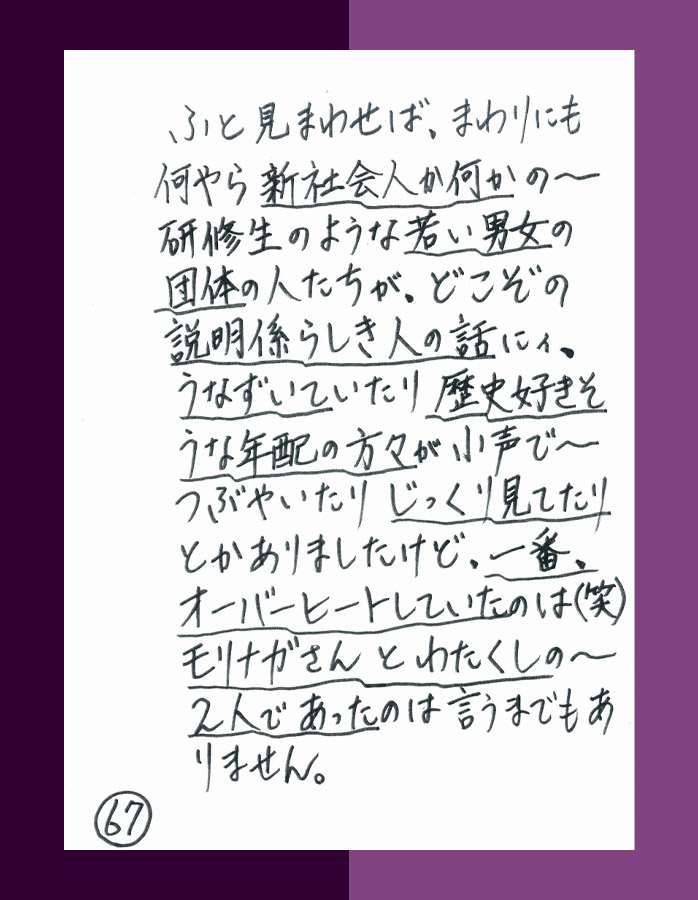 ふと見まわせば、まわりにも
何やら新社会人か何かの〜
研修生のような若い男女の
団体の人たちが、どこぞの
説明係らしき人の話にィ、
うなずいていたり歴史好きそ
うな年配の方々が小声で〜
つぶやいたりじっくり見てたり
とかありましたけど、一番、
オーバーヒートしていたのは(笑)
モリナガさんとわたくしの〜
2人であったのは言うまでもあ
りません。
67